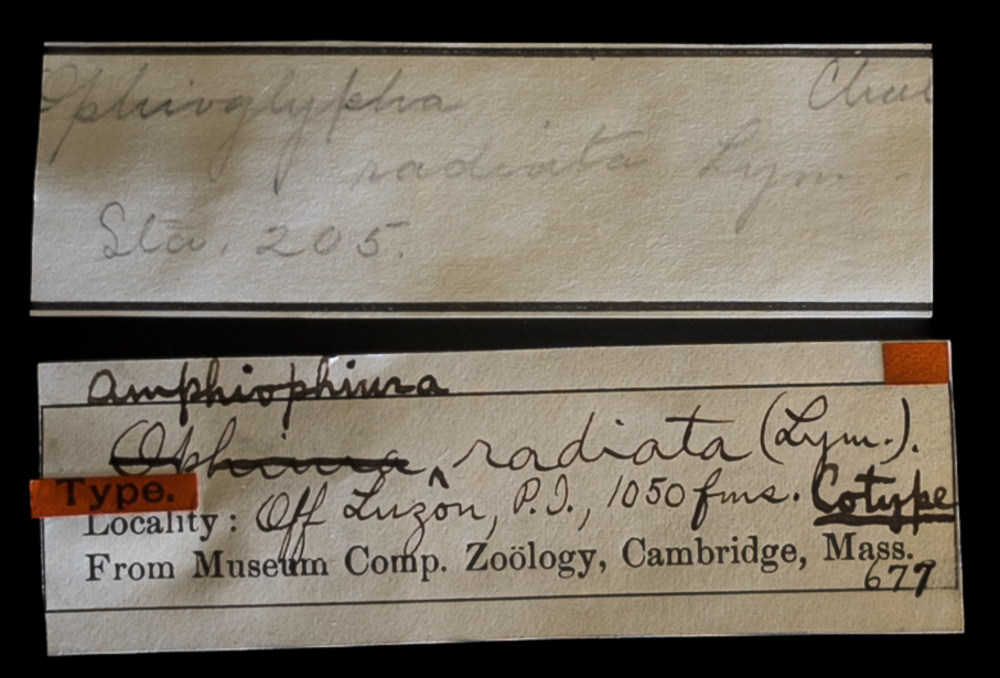 Ophioglypha Chal
radiata Lym.
Sta. 205.
Amphiophiura
Ophiura ^ radiata (Lym.).
Type.
Locality: Off Luzon, P.I., 1050 fms. Cotype
From Museum Comp. Zoölogy, Cambridge, Mass.
677